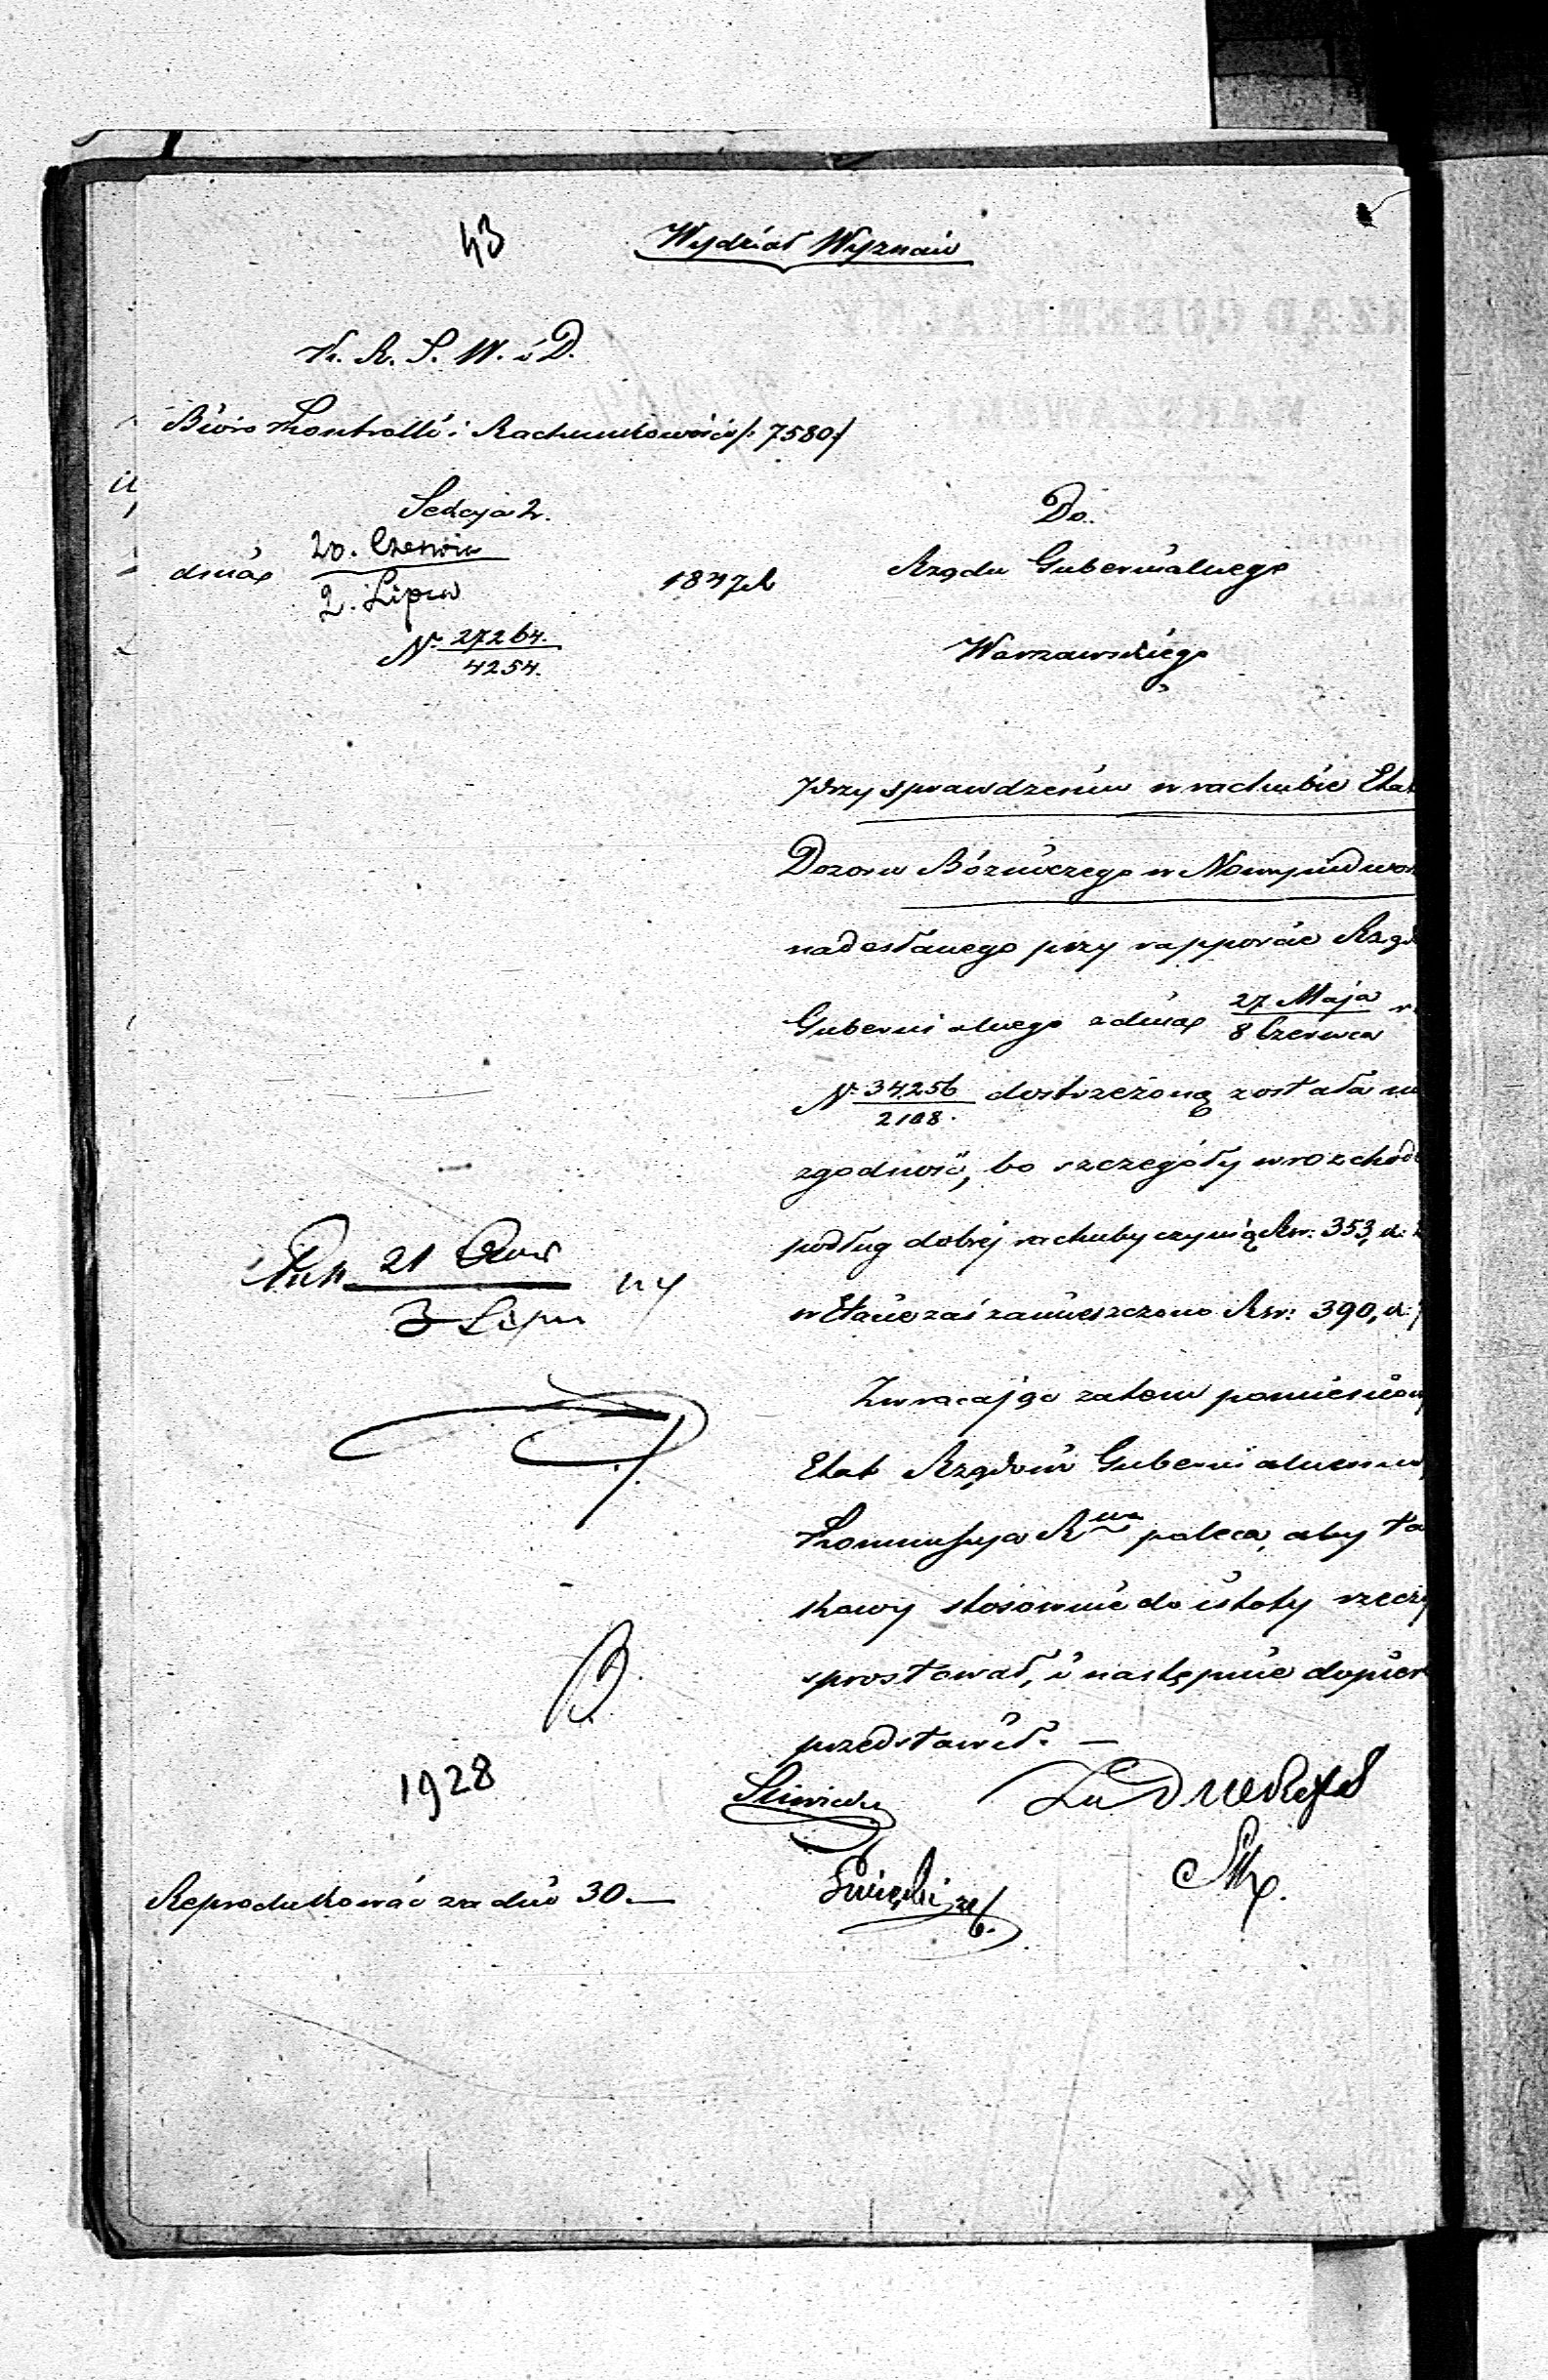 43
Wydział Wyznań
K. R. S. W. i D.
Bióro Kontrolli i Rachunkowości /: 7580 :/
Sekcyja 2.
dnia 20. Czerwca
2. Lipca
1847 R
No 27264.
4254.
Do
Rządu Gubernialnego
Warszawskiego
Przy sprawdzeniu w rachubie Etat
Dozoru Bóżniczego w Nowymdwor
nadesłanego przy rapporcie Rząd
Gubernialnego z dnia 27 Maja
8 Czerwca
No 34256
2108.
dostrzeżoną została nie
zgodność, bo szczegóły w rozchod
podług dobrej rachuby czynią Rsr. 353, k:
w Etacie zaś zamieszczono Rsr: 390, k:
Zwracając zatem pomienion
Etat Rządowi Gubernialnemu
Kommissya Rwa poleca, aby ta
kowy stosownie do istoty rzeczy
sprostował, i następnie dopier
przedstawił. —
21 Czer
3 Lipca
B.
1928
Reprodukować za dni 30. —